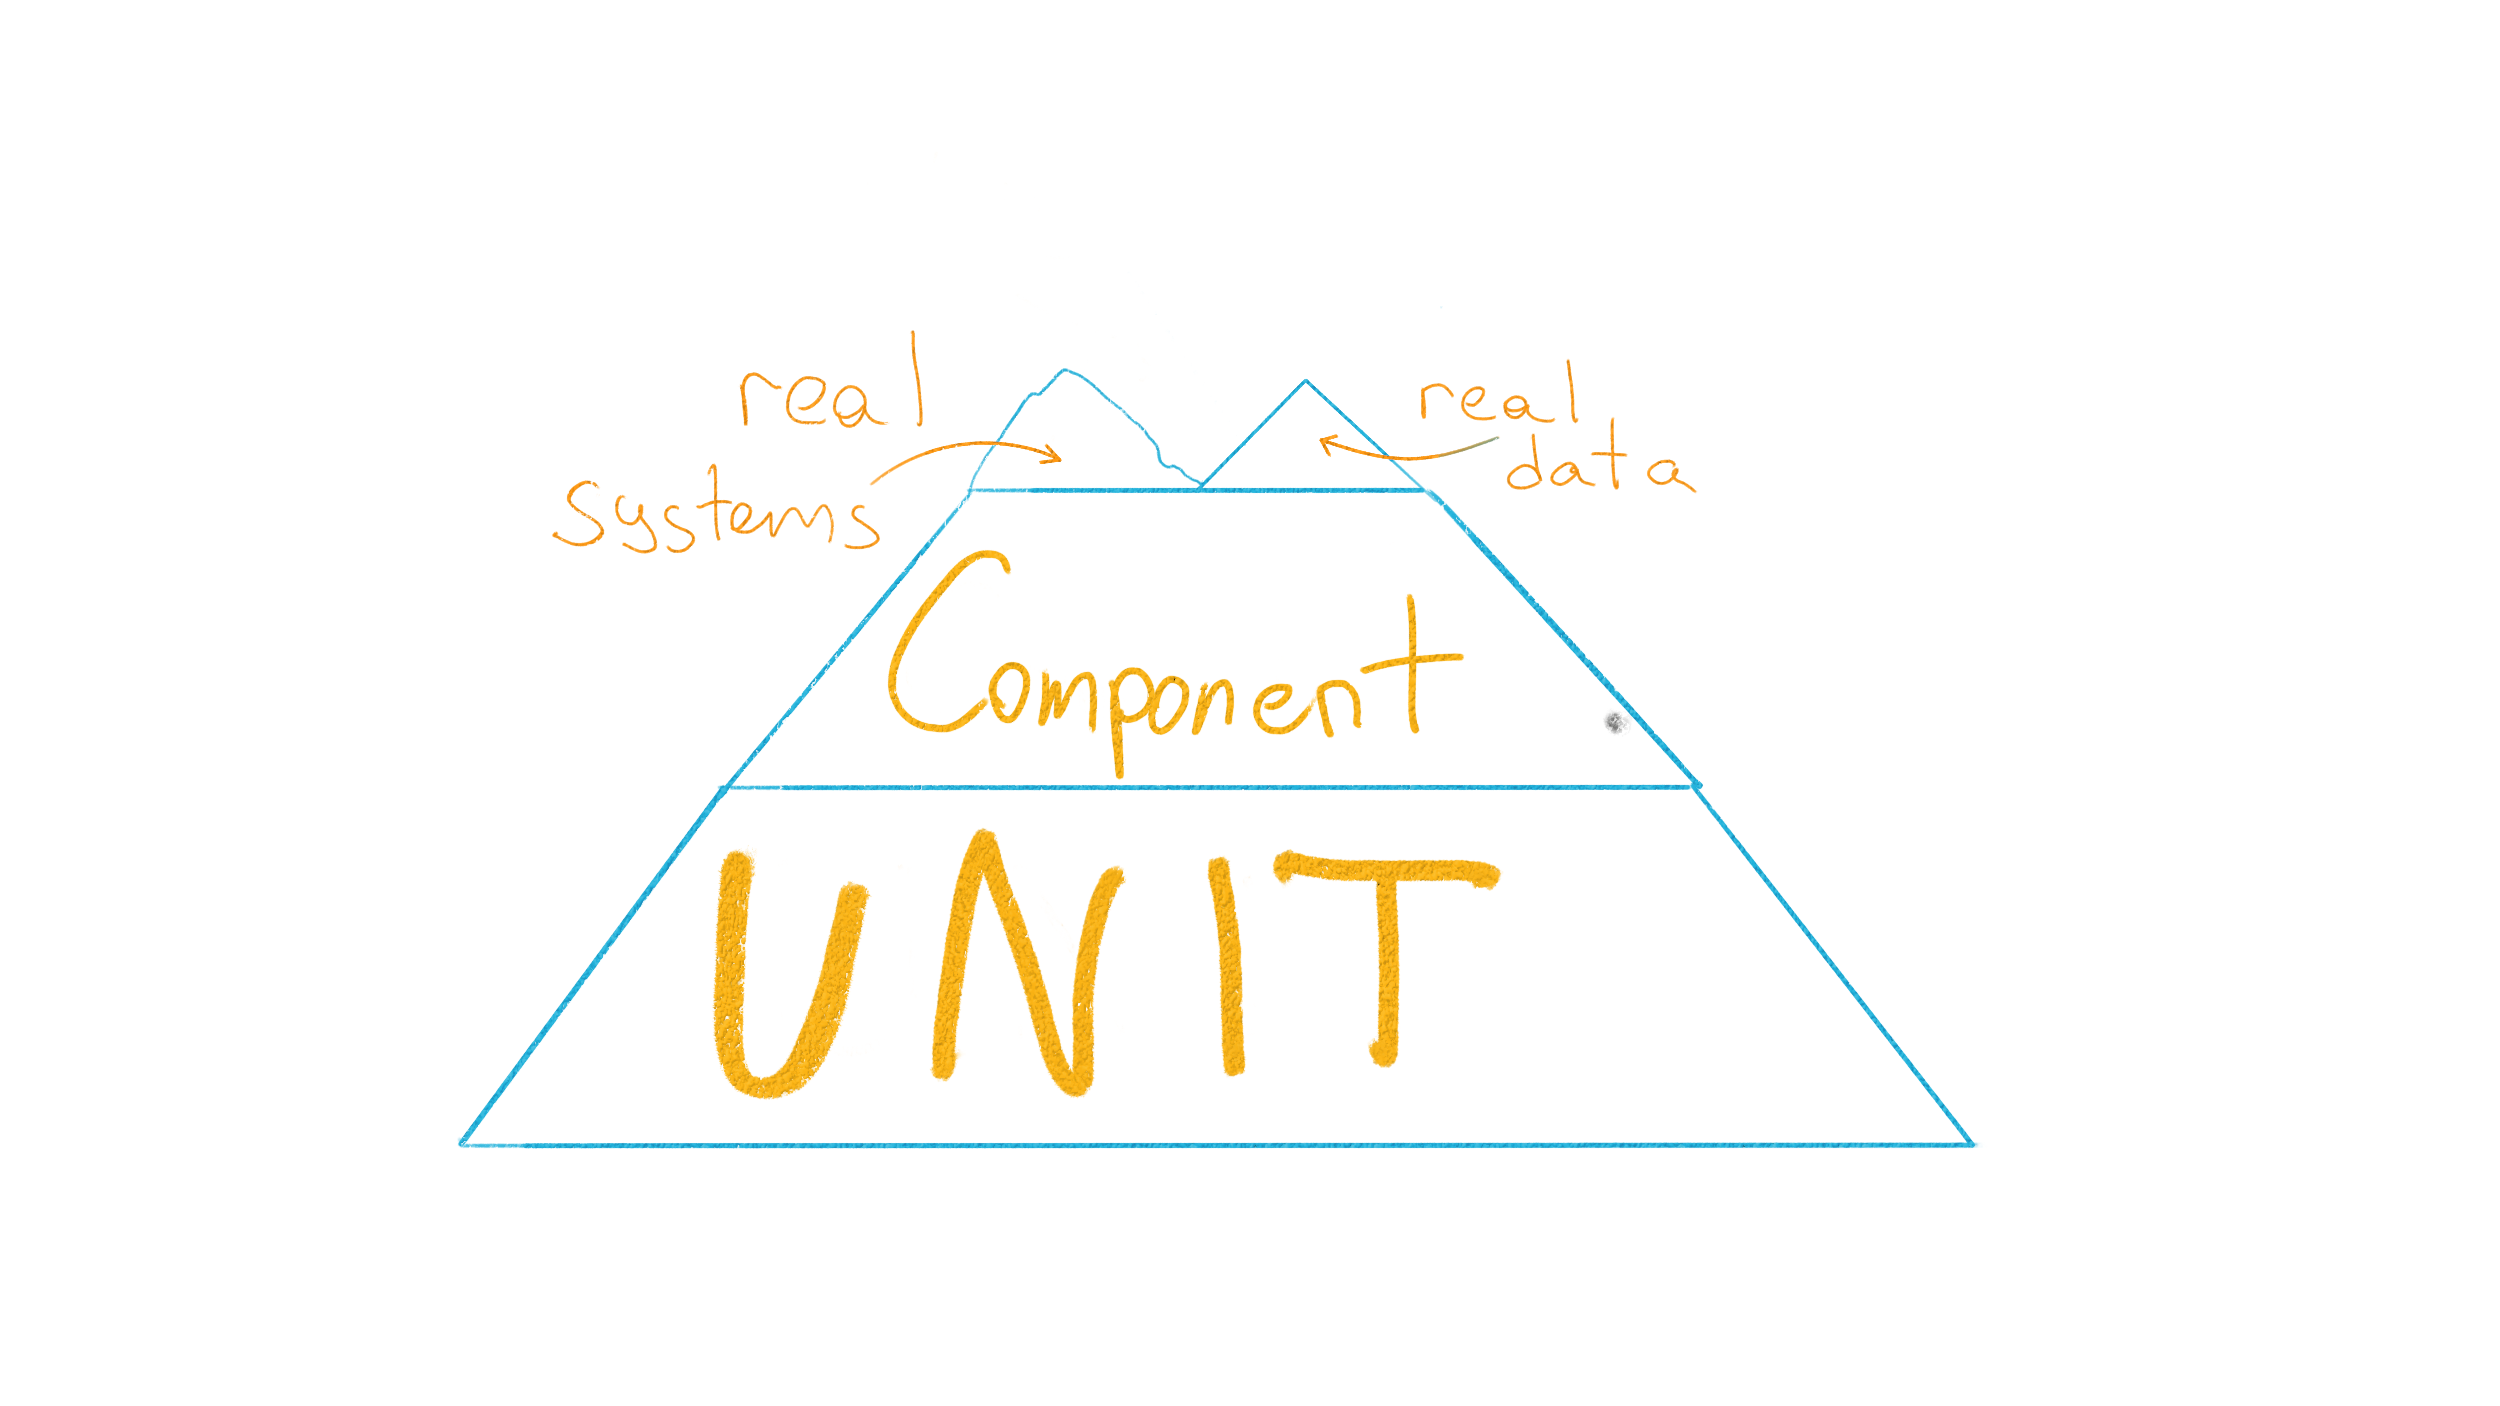 real
systems
real
data
Component
UNIT